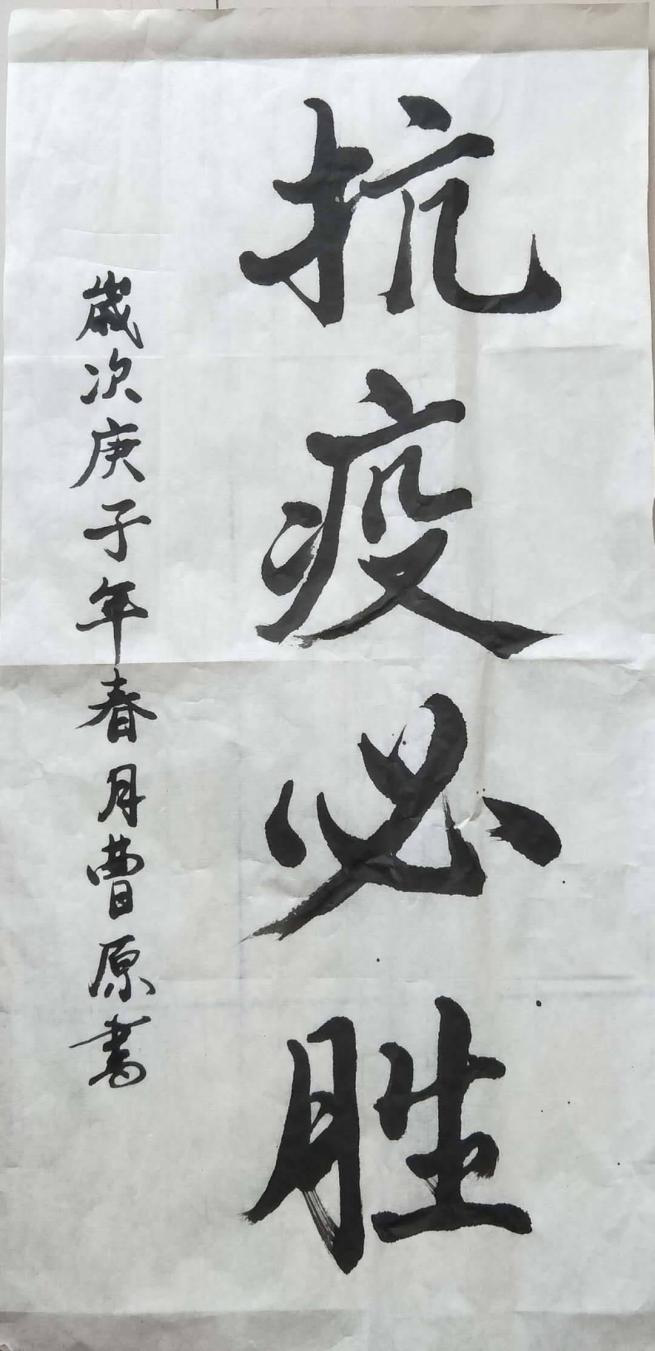 抗疫必胜
歲次庚子年春月曹原書